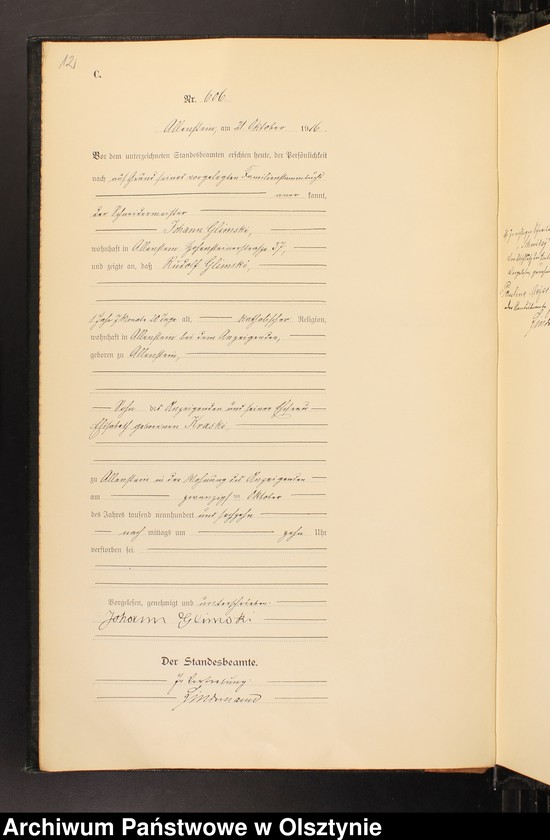 121
C.
Nr. 606.
Allenstein, am 21. Oktober 1916.
Vor dem unterzeichneten Standesbeamten erschien heute, der Persönlichkeit
nach auf Grund seines vorgelegten Familienstammbuchs
aner kannt,
der Schneidermeister
Johann Glimski,
wohnhaft in Allenstein, Hohensteinerstraße 37,
und zeigte an, daß Rudolf Glimski,
1 Jahr 7 Monate Tage alt, katholischer Religion,
wohnhaft in Allenstein bei dem Anzeigenden,
geboren zu Allenstein,
Sohn des Anzeigenden und seiner Ehefrau
Elisabeth geborenen
zu Allenstein in der Wohnung des Anzeigenden
am zwanzigsten Oktober
des Jahres tausend neunhundert und sechzehn
nach mittags um zehn Uhr
verstorben sei.
Vorgelesen, genehmigt und unterschrieben.
Johann Glimski
Der Standesbeamte.
In Vertretung
Archiwum Państwowe w Olsztynie